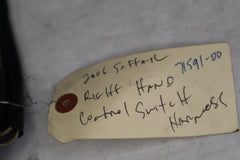 2006 Softail
71591-00
Right Hand
Control Switch
Harness